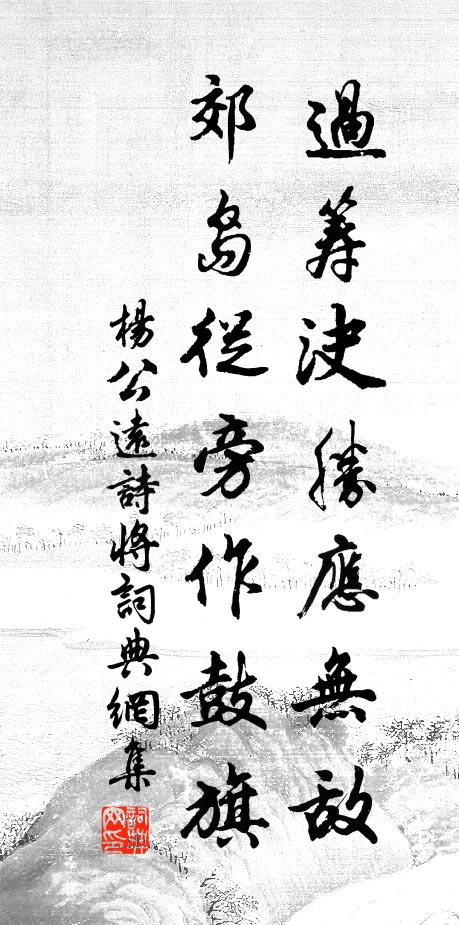 過筭决勝應無敵
郊島從旁作鼓旗
楊公遠詩將詞典網集